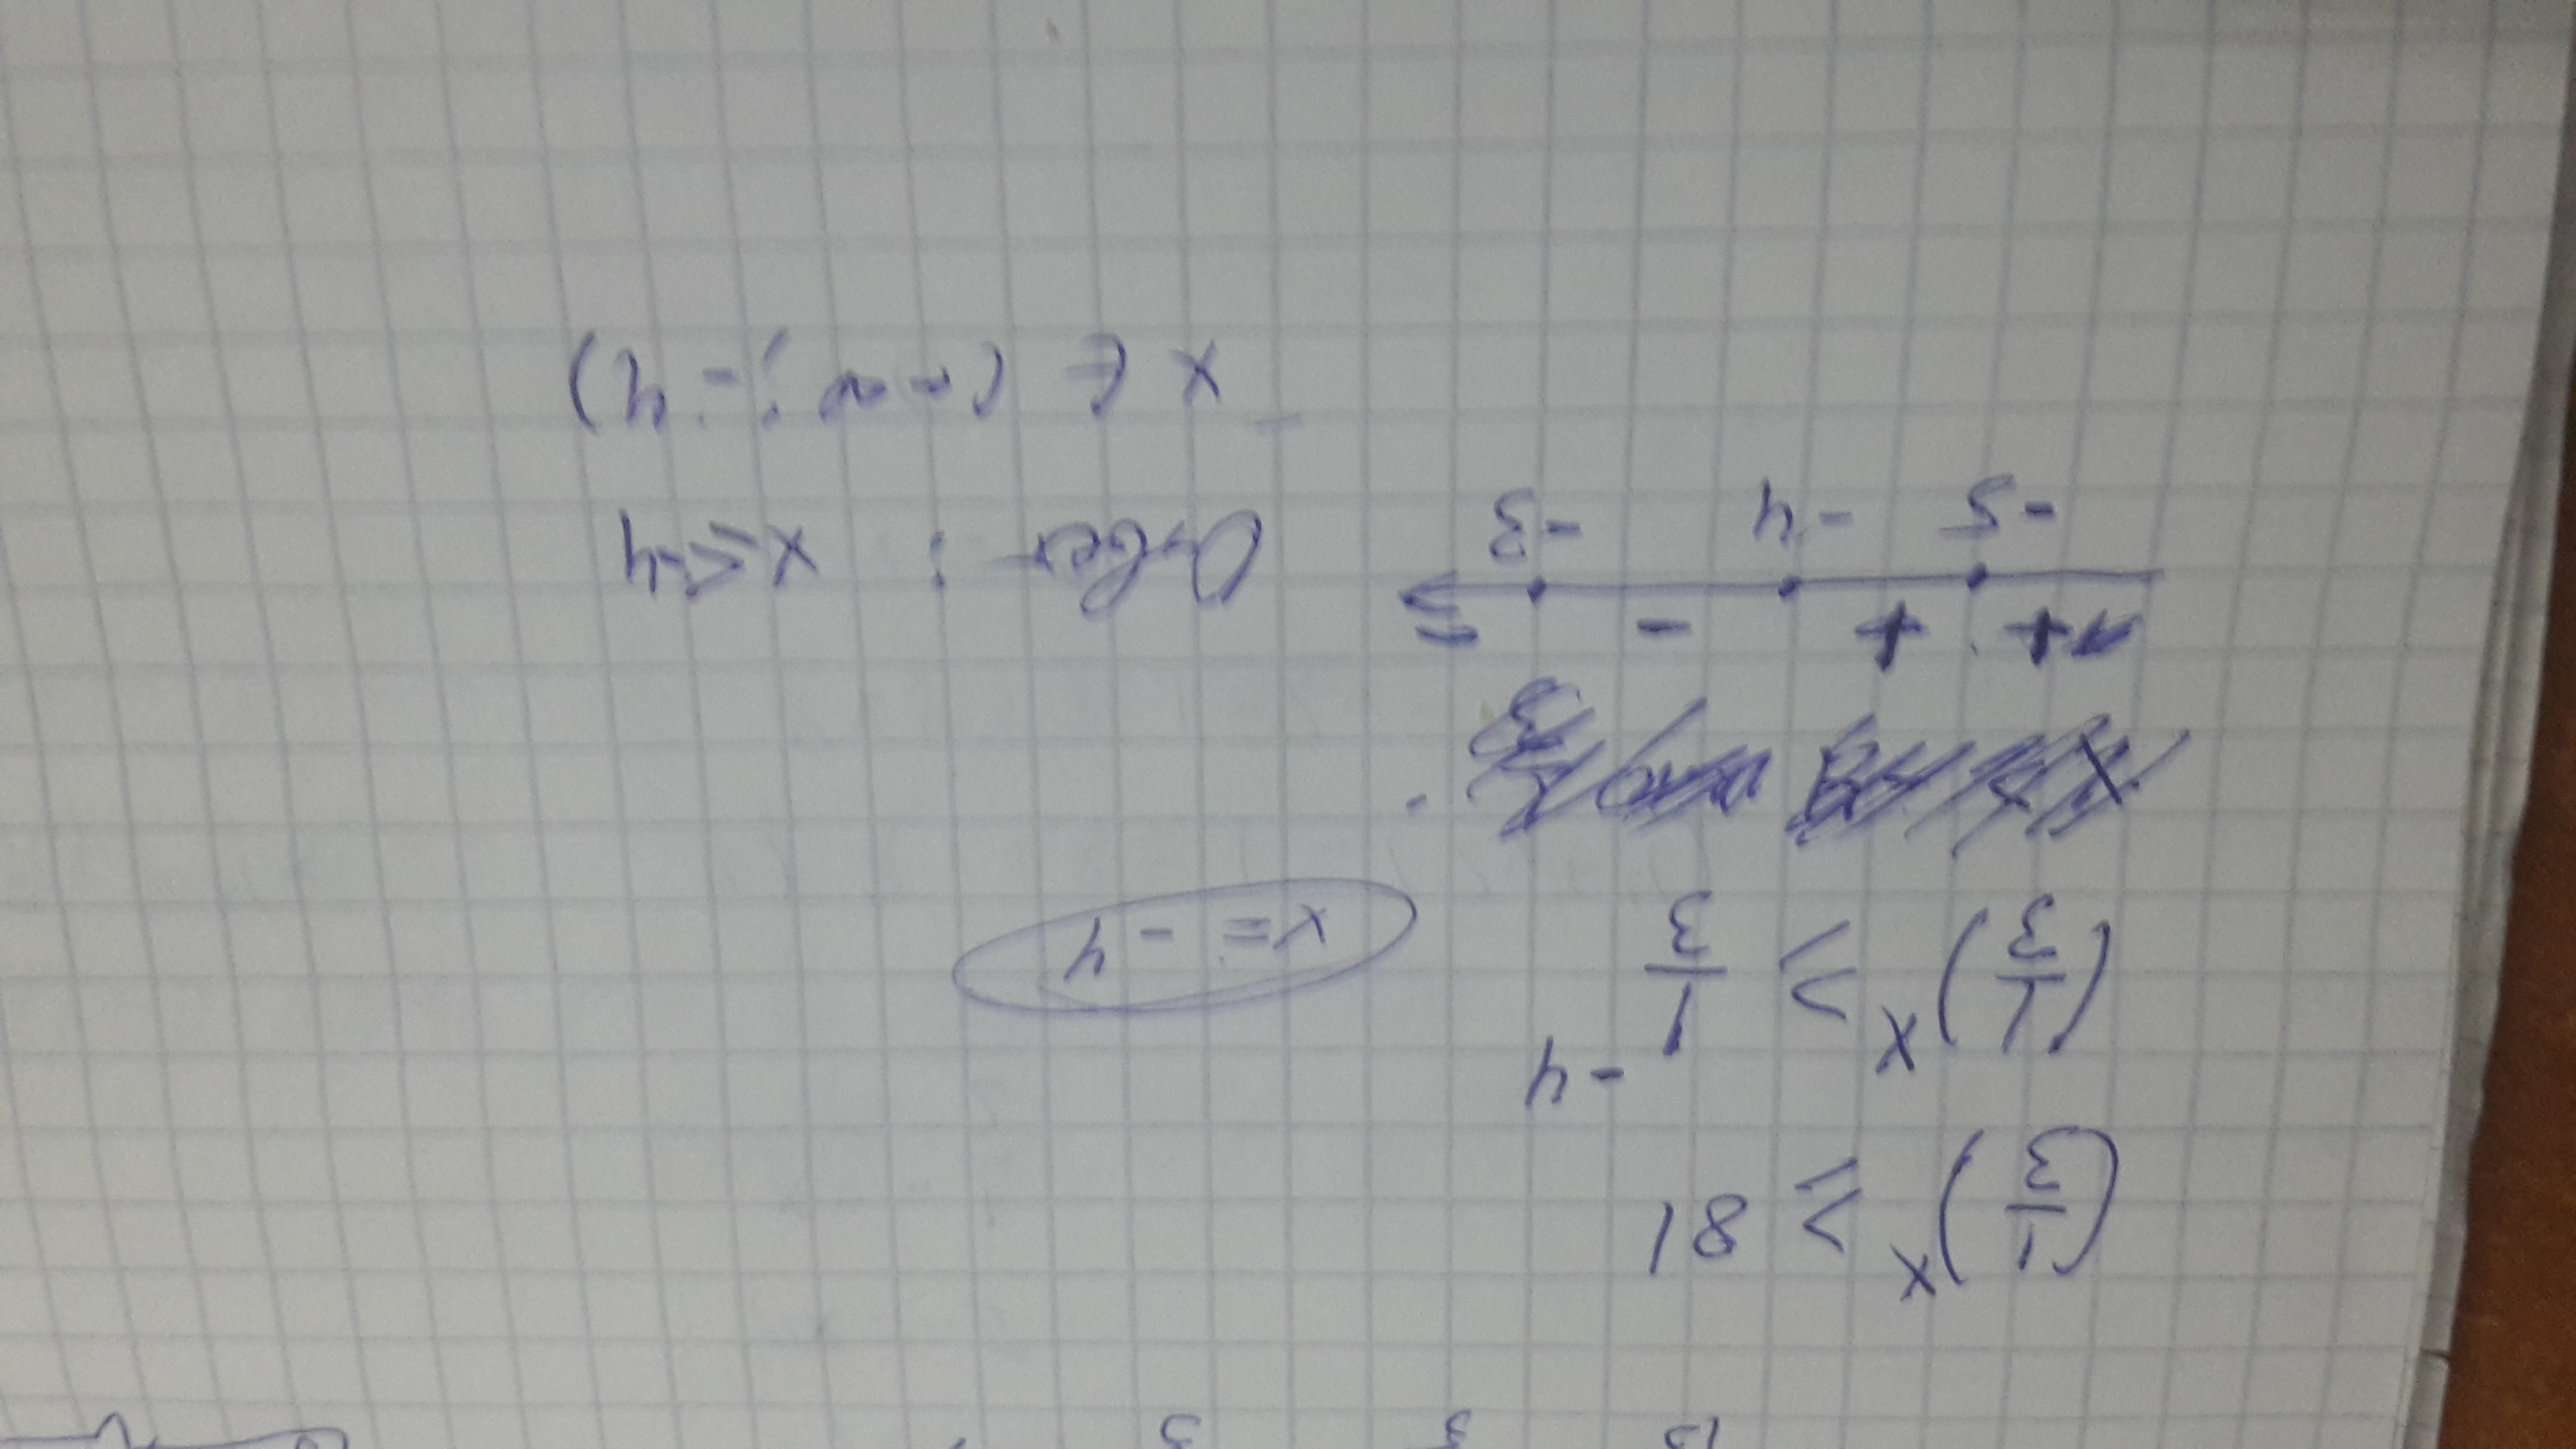 (1/3)^x ≥ 81
(1/3)^x ≥ 1/3^-4
x = -4
+ + -
-5 -4 -3
Ответ: x ≤ -4
x ∈ (-∞; -4)